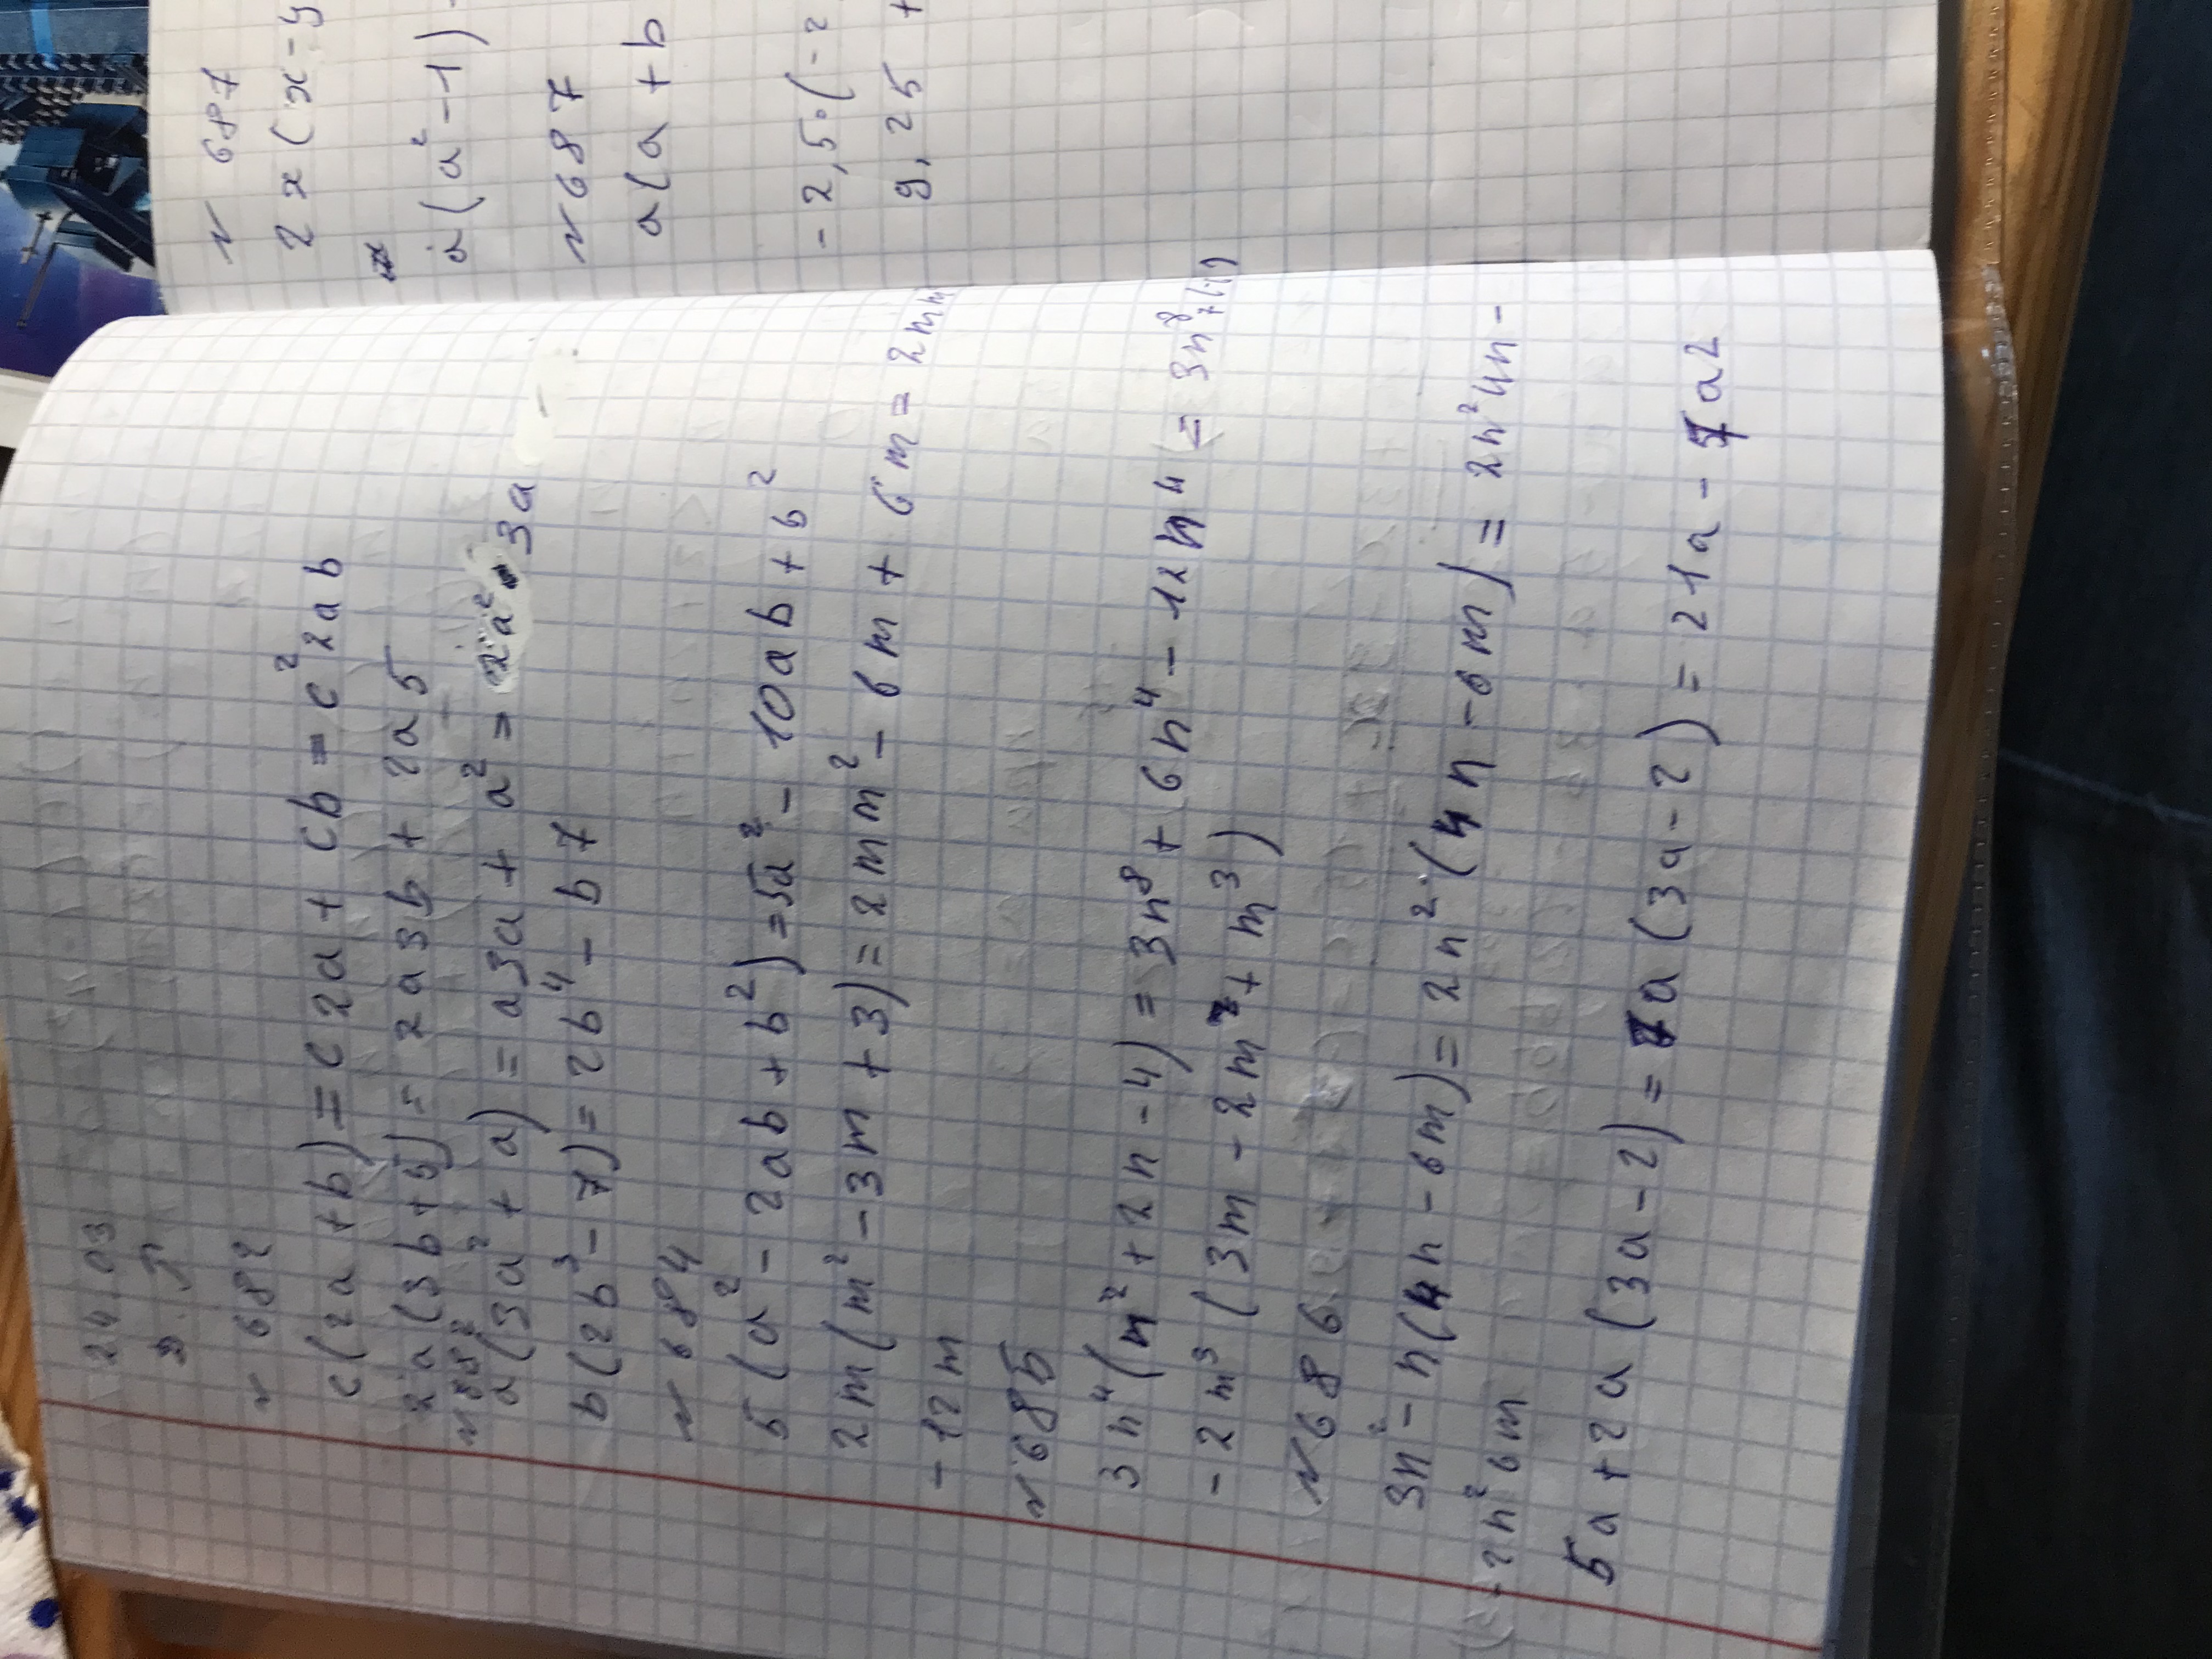 24.03
Д. Р.
N 682
c(2a+b)=c2a+cb=c²2ab
2a(3b+5)=2a3b+2a5
N 882
a(3a²+a)=a3a+a²=2a²3a
b(2b³-7)=2b⁴-b7
N 684
5(a²-2ab+b²)=5a²-10ab+b²
2m(m²-3m+3)=2mm²-6m+6m=2mm
-12m
N685
3n⁴(n²+2n-4)=3n⁸+6n⁴-12n4=3n⁸
-2m³(3m-2m²+m³)
N686
3n²-n(4n-6m)=2n²(4n-6m)=2n²4n-
-2n²6m
5a+2a(3a-2)=7a(3a-2)=21a-7a2
N 687
2x(x-y
a(a²-1)
N687
a(a+b
-2,5·(-2
9,25+